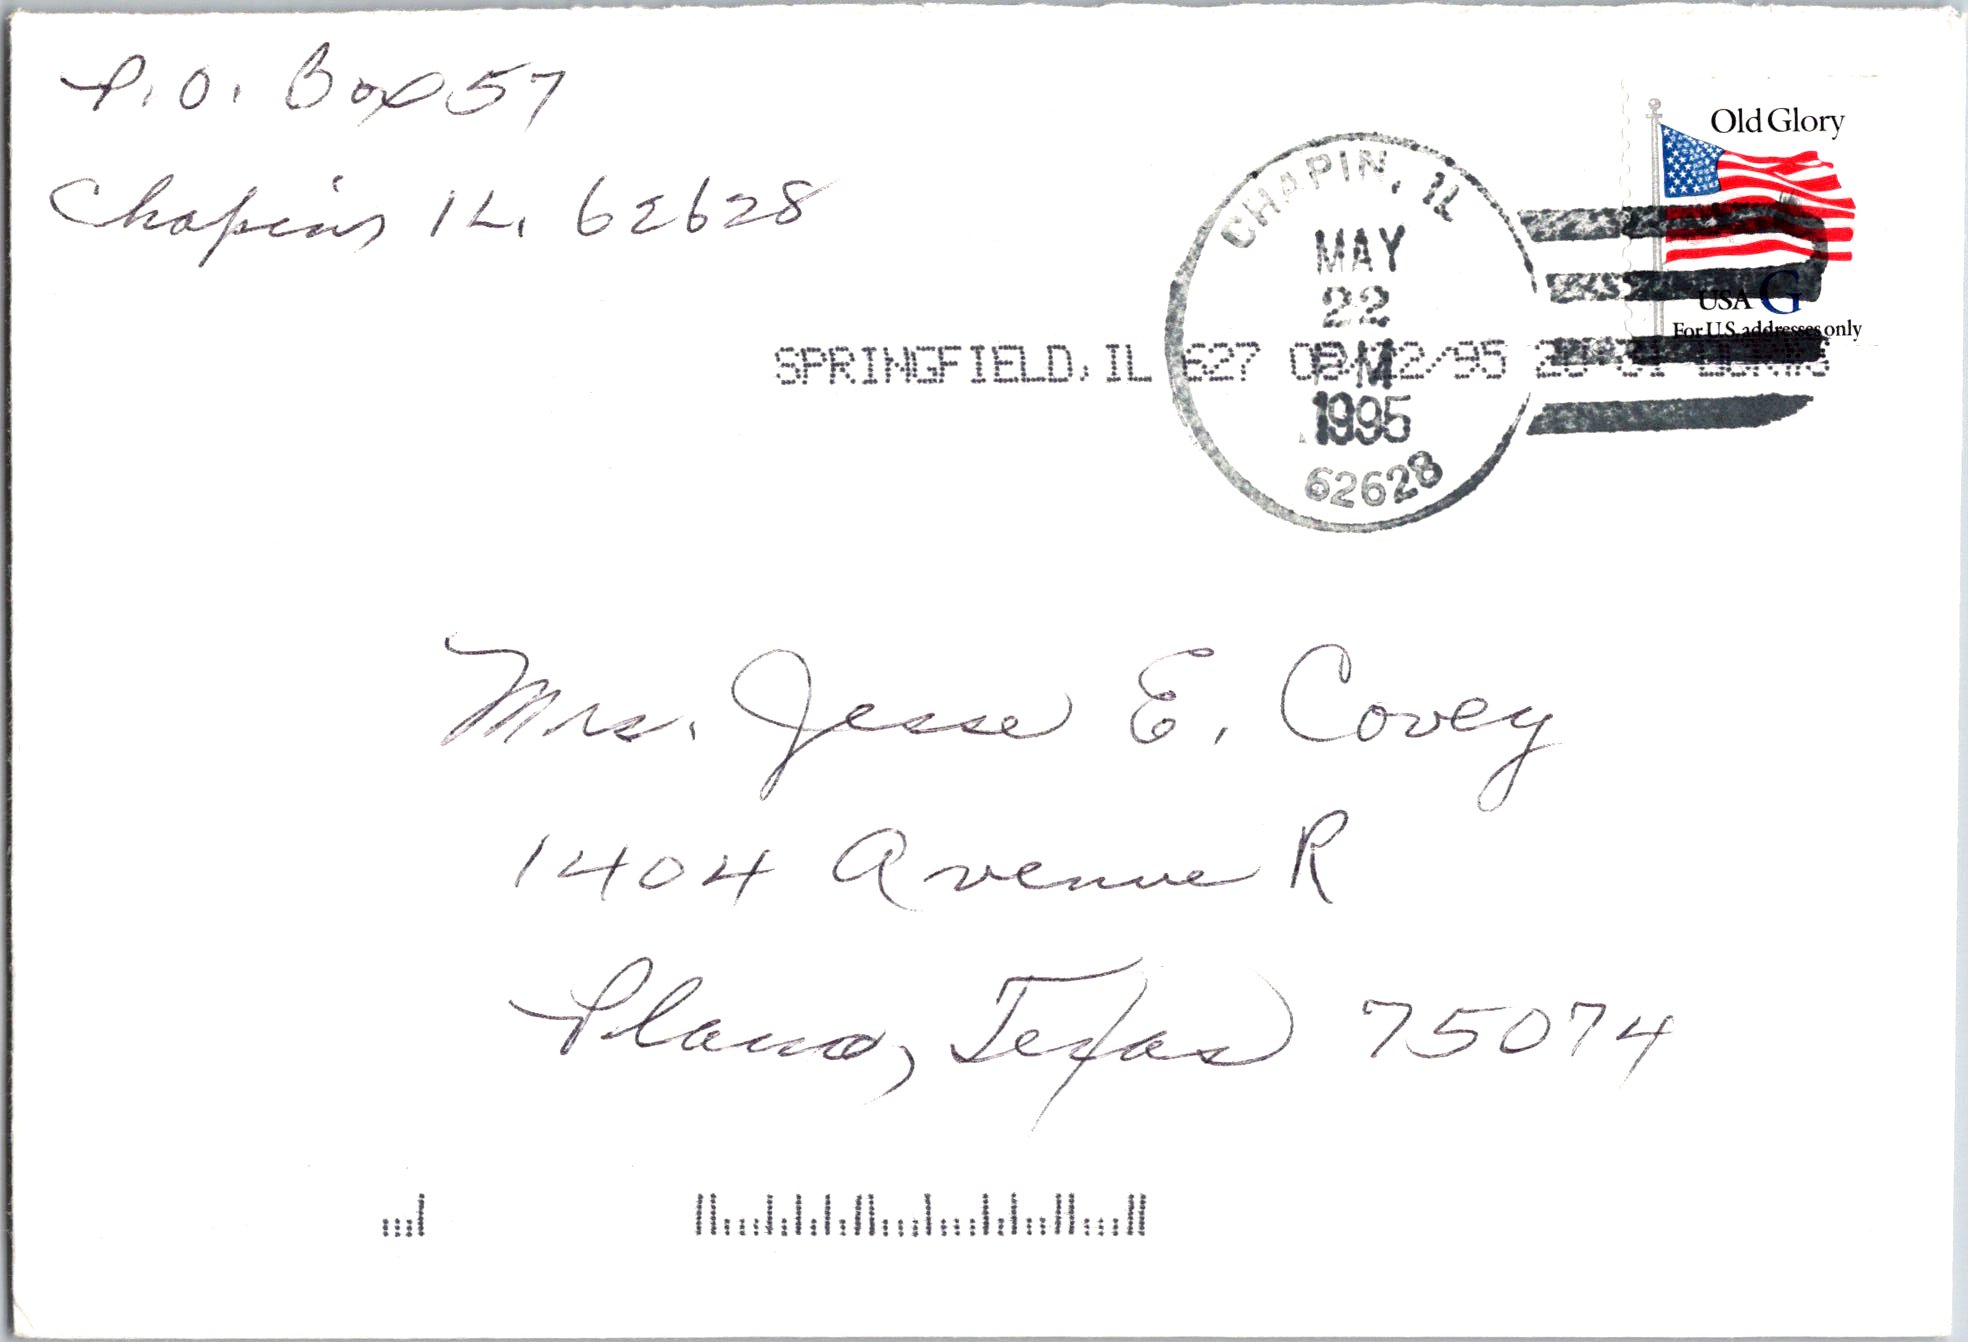 P.O. Box 57
Chapin, IL. 62628
Old Glory
USA G
For U.S. addresses only
CHAPIN, IL
MAY
22
PM
1995
62628
SPRINGFIELD, IL 627 /95
Mrs. Jesse E. Covey
1404 Avenue R
Plano, Texas 75074